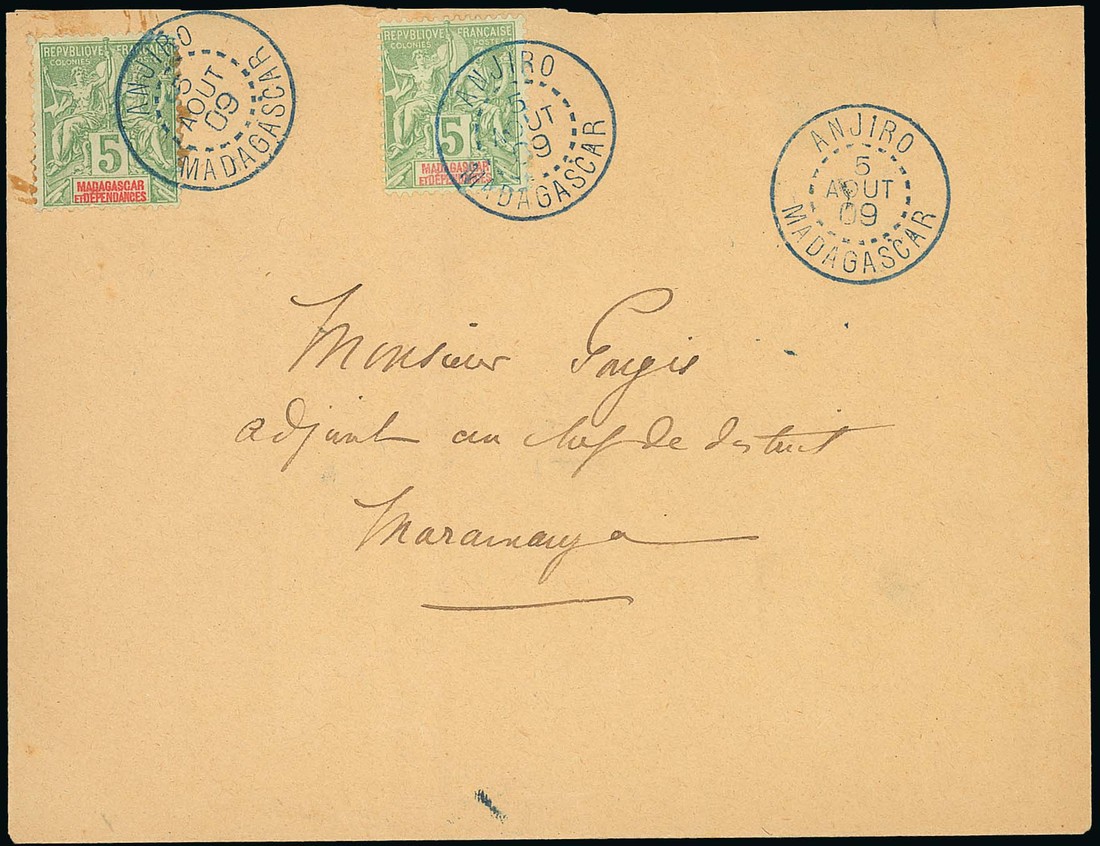 REPVBLIQUE FRANÇAISE
COLONIES POSTES
5
MADAGASCAR
ET DÉPENDANCES
ANJIRO
5
AOUT
09
MADAGASCAR
REPVBLIQUE FRANÇAISE
COLONIES POSTES
5
MADAGASCAR
ET DÉPENDANCES
ANJIRO
5
AOUT
09
MADAGASCAR
ANJIRO
5
AOUT
09
MADAGASCAR
Monsieur
adjoint au chef de district
Maramanga